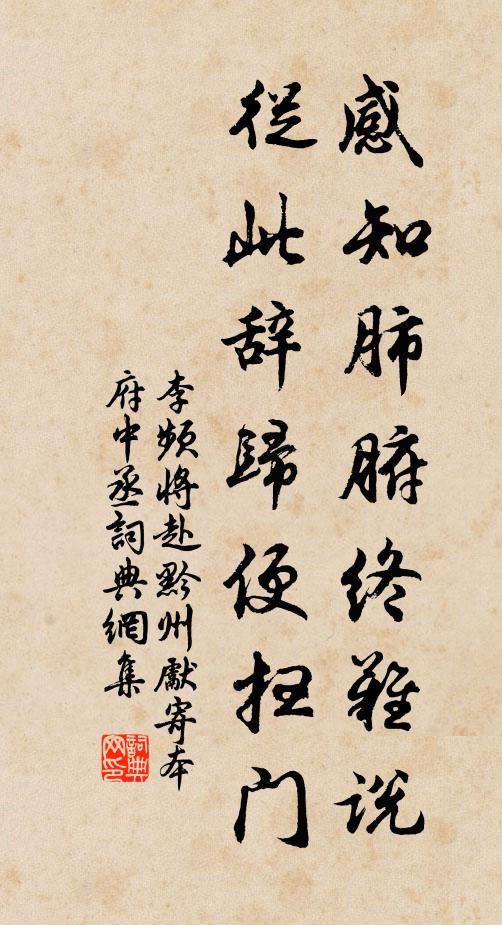 感知肺腑终難说
從此辞歸便扫门
李频将赴黔州獻寄本
府中丞詞典網集
詞典
网印